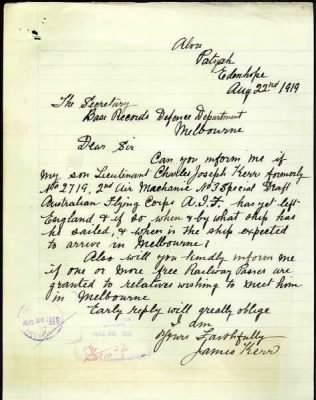 Alva
Patyah
Edenhope
Aug 22nd/1919
The Secretary
Base Records Defence Department
Melbourne
Dear Sir
Can you inform me if
my son Lieutenant Charles Joseph Kerr formerly
No 2719, 2nd Air Mechanic No 3 Special Draft
Australian Flying Corps A.I.F. has yet left
England, & if so when & by what ship has
he sailed, & when is the ship expected
to arrive in Melbourne?
Also will you kindly inform me
if one or more free Railway Passes are
granted to relatives wishing to meet him
in Melbourne
Early reply will greatly oblige
I am
Yours Faithfully
James Kerr